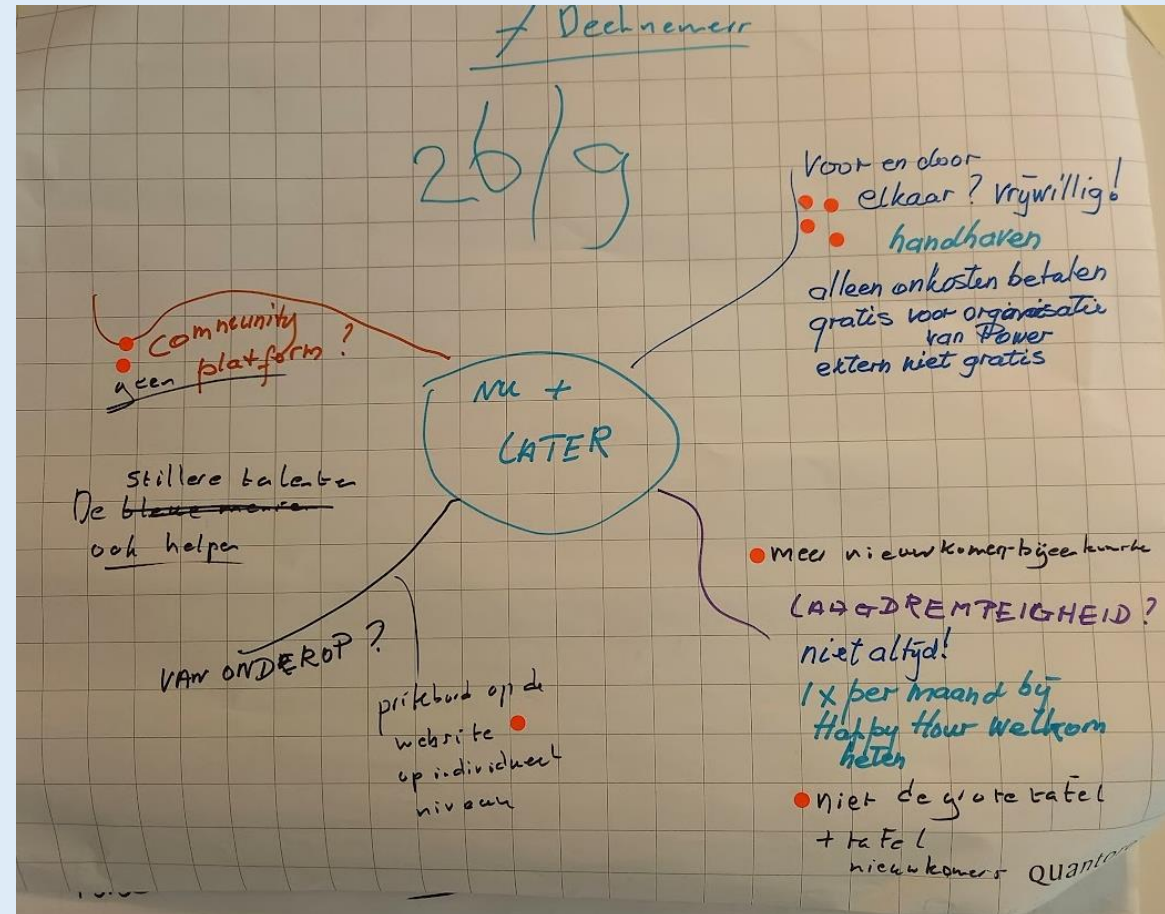 7 Deelnemers
26/9
Voor en door
elkaar? vrijwillig!
handhaven
alleen onkosten betalen
gratis voor organisatie
van Power
extern niet gratis
community
platform?
geen
NU +
LATER
stillere talenten
De
ook helpen
VAN ONDEROP?
prikbord op de
website
op individueel
niveau
meer nieuwkomer-bijeenkomste
LAAGDREMPEIGHEID?
niet altijd!
1x per maand bij
Happy Hour Welkom
heten
niet de grote tafel
+ tafel
nieuwkomers
Quanto